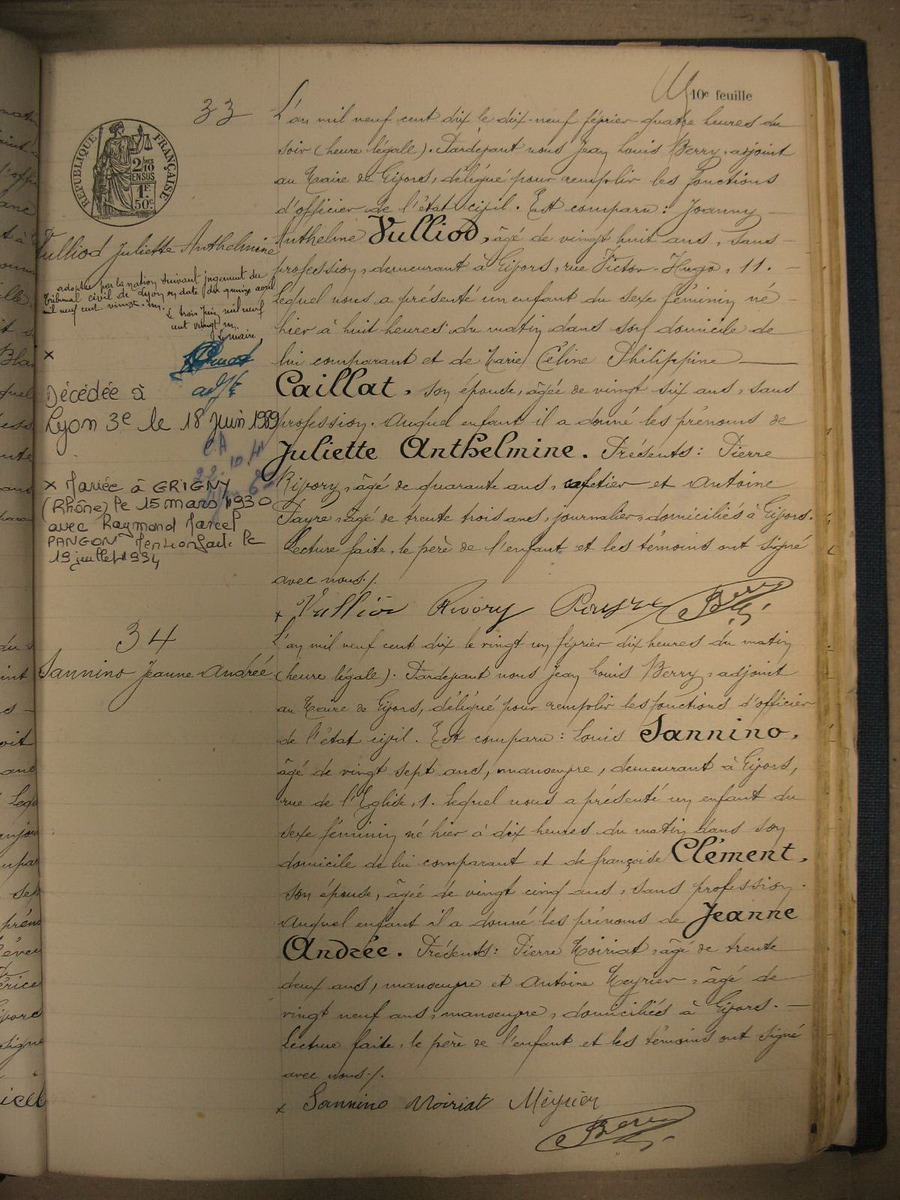 10e feuille
33
RÉPUBLIQUE FRANÇAISE
2/10 EN SUS
1F 50c
Vulliod Juliette Anthelmine
adoptée par la nation suivant jugement du
Tribunal civil de Lyon en date du quinze avril
mil neuf cent vingt-un.
Le trois juin mil neuf
cent vingt un.
Le maire
adjt
×
Décédée à
Lyon 3e le 18 juin 1989
× Mariée à GRIGNY
(Rhône) le 15 mars 1930
avec Raymond Marcel
PANGON Mention faite le
19 juillet 1934
L'an mil neuf cent dix le dix-neuf février quatre heures du
soir (heure légale). Pardevant nous Jean Louis Berry, adjoint
au Maire de Givors, délégué pour remplir les fonctions
d'officier de l'état civil. Est comparu: Joanny
Anthelme Vulliod, âgé de vingt huit ans, sans
profession, demeurant à Givors, rue Victor-Hugo, 11.
Lequel nous a présenté un enfant du sexe féminin né
hier à huit heures du matin dans son domicile de
lui comparant et de Marie Céline Philippine
Caillat, son épouse, âgée de vingt six ans, sans
profession. Auquel enfant il a donné les prénoms de
Juliette Anthelmine. Présents: Pierre
Rivory, âgé de quarante ans, cafetier et Antoine
Fayre, âgé de trente trois ans, journalier, domiciliés à Givors.
Lecture faite, le père de l'enfant et les témoins ont signé
avec nous./.
× Vulliod Rivory Berry
34
Sannino Jeanne Andrée
L'an mil neuf cent dix le vingt un février dix heures du matin
(heure légale). Pardevant nous Jean Louis Berry, adjoint
au Maire de Givors, délégué pour remplir les fonctions d'officier
de l'état civil. Est comparu: Louis Sannino,
âgé de vingt sept ans, manoeuvre, demeurant à Givors,
rue de l'Eglise, 1. Lequel nous a présenté un enfant du
sexe féminin né hier à dix heures du matin dans son
domicile de lui comparant et de françoise Clément,
son épouse, âgée de vingt cinq ans, sans profession.
Auquel enfant il a donné les prénoms de Jeanne
Andrée. Présents: Pierre Moiriat, âgé de trente
deux ans, manoeuvre et Antoine Meyrier, âgé de
vingt neuf ans, manoeuvre, domiciliés à Givors.
Lecture faite, le père de l'enfant et les témoins ont signé
avec nous./.
× Sannino Moiriat Méyrier
Berry